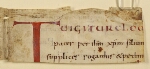 TE IGITUR CLE
pater per ihm xpm filium
supplices rogamus et petim